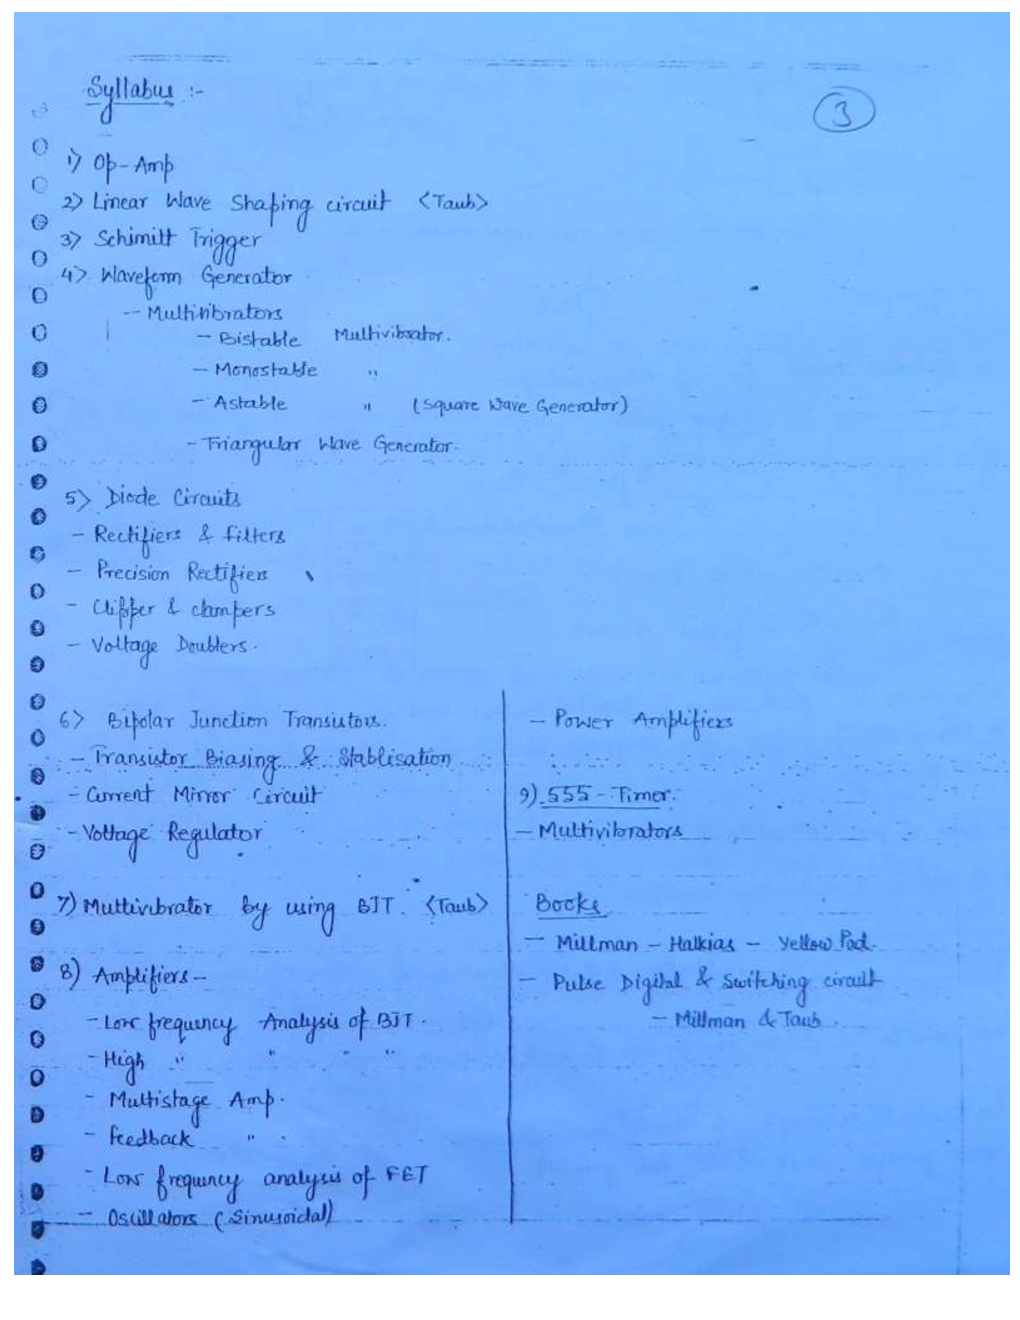 Syllabus :-
3
1) Op-Amp
2) Linear Wave Shaping circuit <Taub>
3) Schimitt Trigger
4) Waveform Generator
-- Multivibrators
- Bistable Multivibrator.
- Monostable "
- Astable " (Square Wave Generator)
- Triangular Wave Generator.
5) Diode Circuits
- Rectifiers & filters
- Precision Rectifiers
- Clipper & clampers
- Voltage Doublers.
6) Bipolar Junction Transistors.
- Transistor Biasing & Stablisation
- Current Mirror Circuit
- Voltage Regulator
7) Multivibrator by using BJT. <Taub>
8) Amplifiers -
- Low frequency Analysis of BJT.
- High " " " "
- Multistage Amp.
- Feedback "
- Low frequency analysis of FET
- Oscillators (Sinusoidal)
- Power Amplifiers
9) 555 - Timer.
- Multivibrators
Books
- Millman - Halkias - Yellow Pad.
- Pulse Digital & Switching circuit
- Millman & Taub.